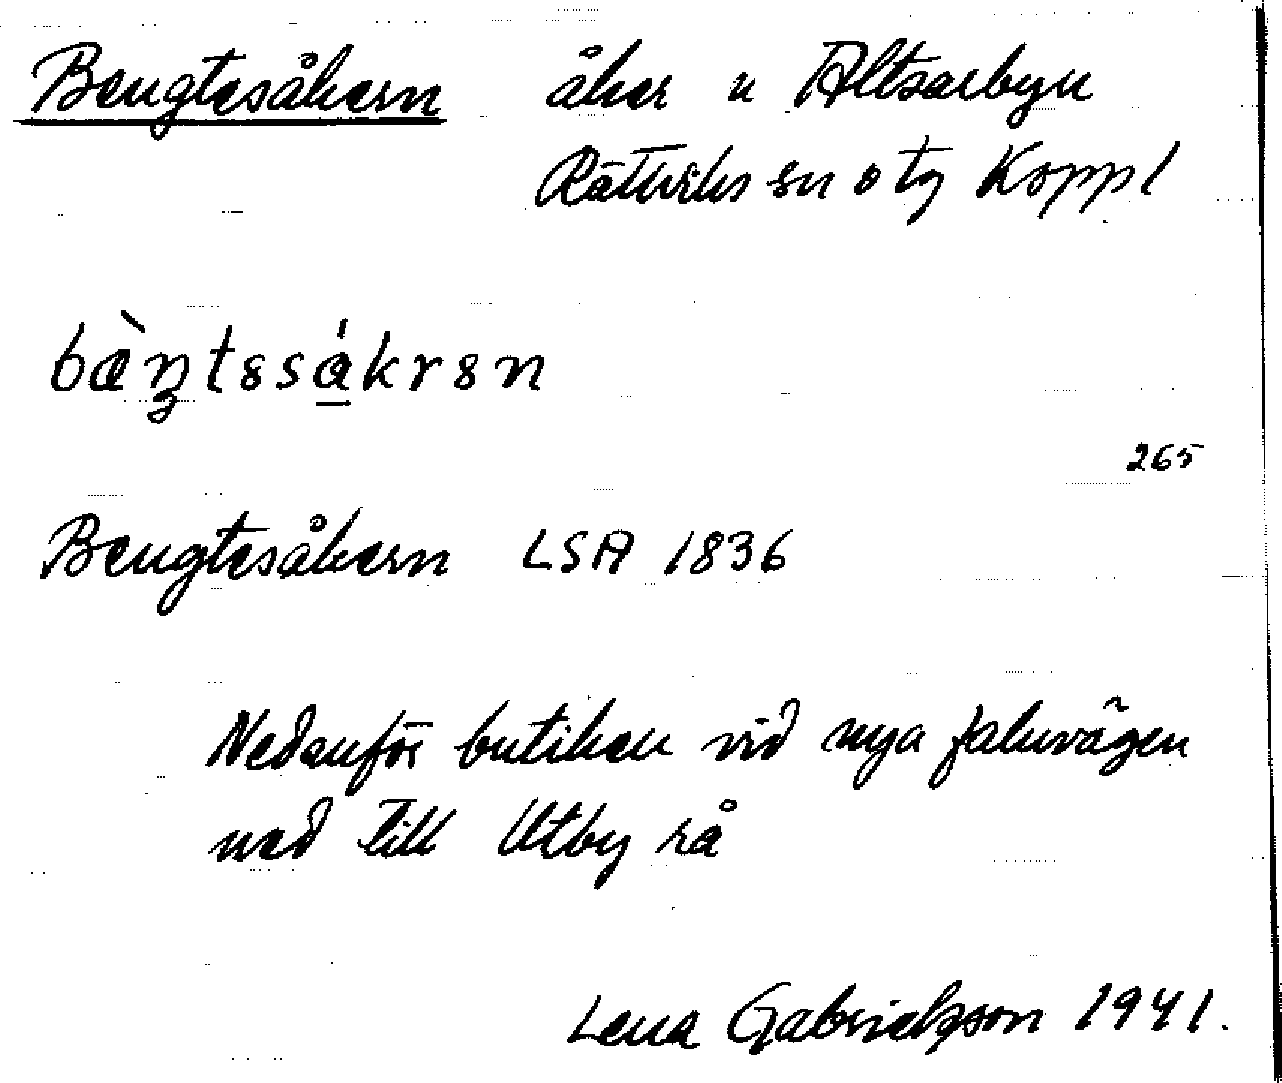 Bengtesåkern åker n Altsarbyn
Rättviks sn o tg Koppl
bæ̀ŋtəssá̱krən
265
Bengtesåkern LSA 1836
Nedanför butiken vid nya faluvägen
ned till Utby rå
Lena Gabrielsson 1941.